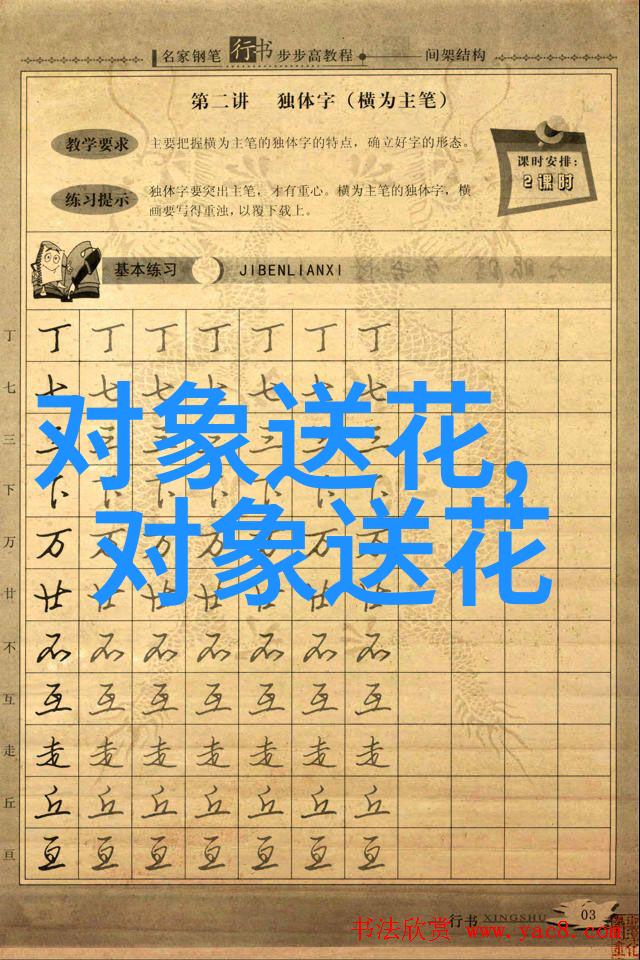 名家钢笔 行书 步步高教程 间架结构
第二讲 独体字（横为主笔）
教学要求 主要把握横为主笔的独体字的特点，确立好字的形态。
课时安排：
2课时
练习提示 独体字要突出主笔，才有重心。横为主笔的独体字，横
画要写得重浊，以覆下载上。
基本练习 JIBENLIANXI
丁 丁 丁 丁 丁 丁 丁 丁
七 七 七 七 七 七 七 七
对象送花，
三 三 三 三 三 三 三 三
下 卞 卞 卞 卞 卞 卞 卞
对象送花
万 万 万 万 万 万 万 万
廿 廿 廿 廿 廿 廿 廿 廿
不 不 不 不 不 不 不 不
互 互 互 互 互 互 互 互
走 走 走 走 走 走 走 走
丘 丘 丘 丘 丘 丘 丘 丘
亘 亘 亘 亘 亘 亘 亘 亘
行书 XINGSHU 03
书法欣赏 www.yac8.com